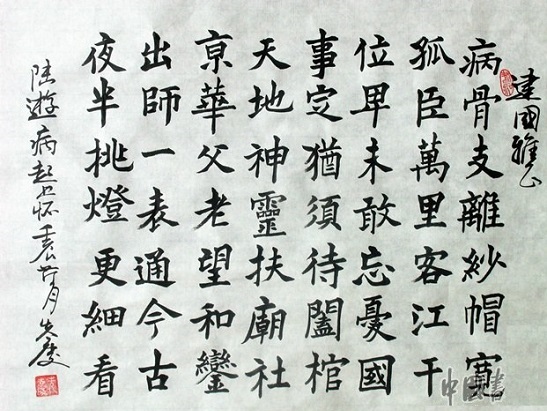 建國雅正
病骨支離紗帽寬
孤臣萬里客江干
位卑未敢忘憂國
事定猶須待闔棺
天地神靈扶廟社
亰華父老望和鑾
出師一表通今古
夜半挑燈更細看
陸遊病起書懷壬辰